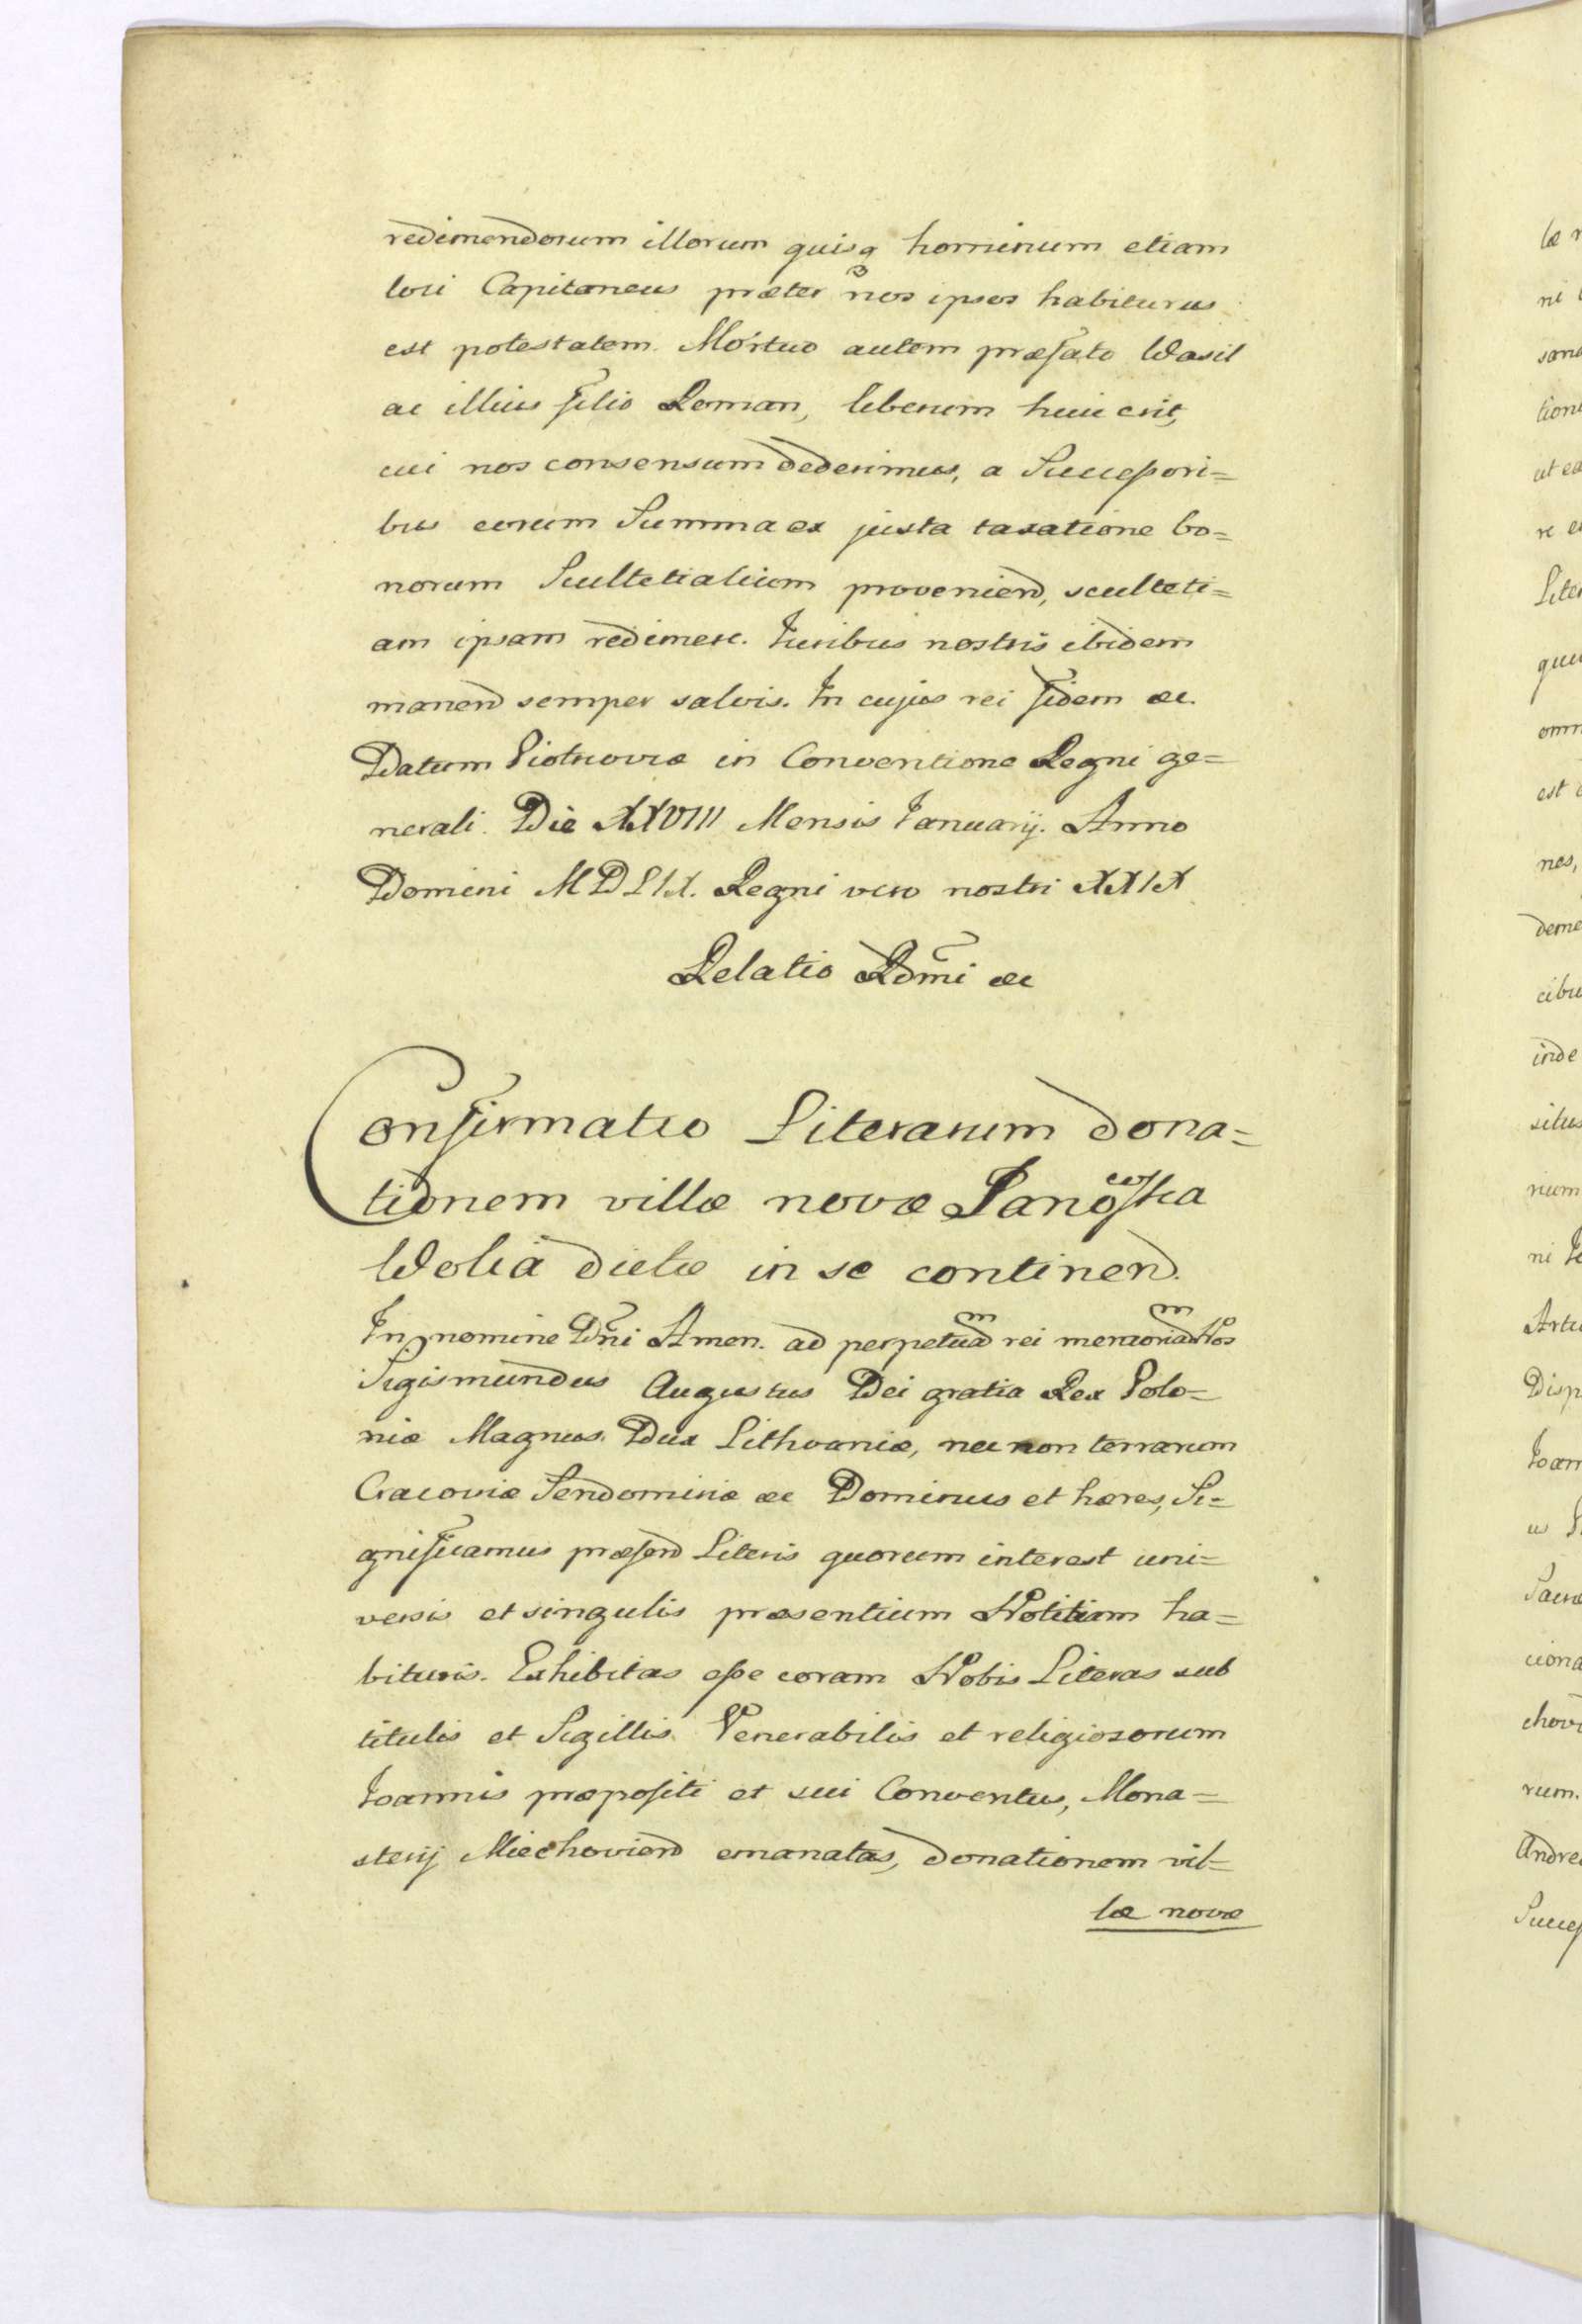 redimendorum illorum quisq hominum etiam
loci Capitaneus præter nos ipsos habiturus
est potestatem. Mortuo autem præfato Wasil
ac illius filio Roman, liberum huic erit,
cui nos consensum dederimus, a Succeßori=
bus eorum Summa ex justa taxatione bo=
norum Scultetialium proveniend, sculteti=
am ipsam redimere. Iuribus nostris ibidem
manend semper salvis. In cujus rei fidem &c.
Datum Piotrcoviæ in Conventione Regni ge=
nerali. Die XXVIII Mensis Ianuarij. Anno
Domini MDLIX. Regni vero nostri XXIX
Relatio Rdmi &c
Confirmatio Literarum dona=
tionem villæ novæ Janowska
Wolia dictæ in se continend.
In nomine Dni Amen. ad perpetuam rei memoriam Nos
Sigismundus Augustus Dei gratia Rex Polo=
niæ Magnus Dux Lithvaniæ, nec non terrarum
Cracoviæ Sendomiriæ &c Dominus et hæres, Si=
gnificamus præsend Literis quorum interest uni=
versis et singulis præsentium Notitiam ha=
bituris. Exhibitas eße coram Nobis Literas sub
titulis et Sigillis Venerabilis et religiosorum
Ioannis præpositi et sui Conventus, Mona=
sterij Miechoviend emanatas, donationem vil=
læ novæ